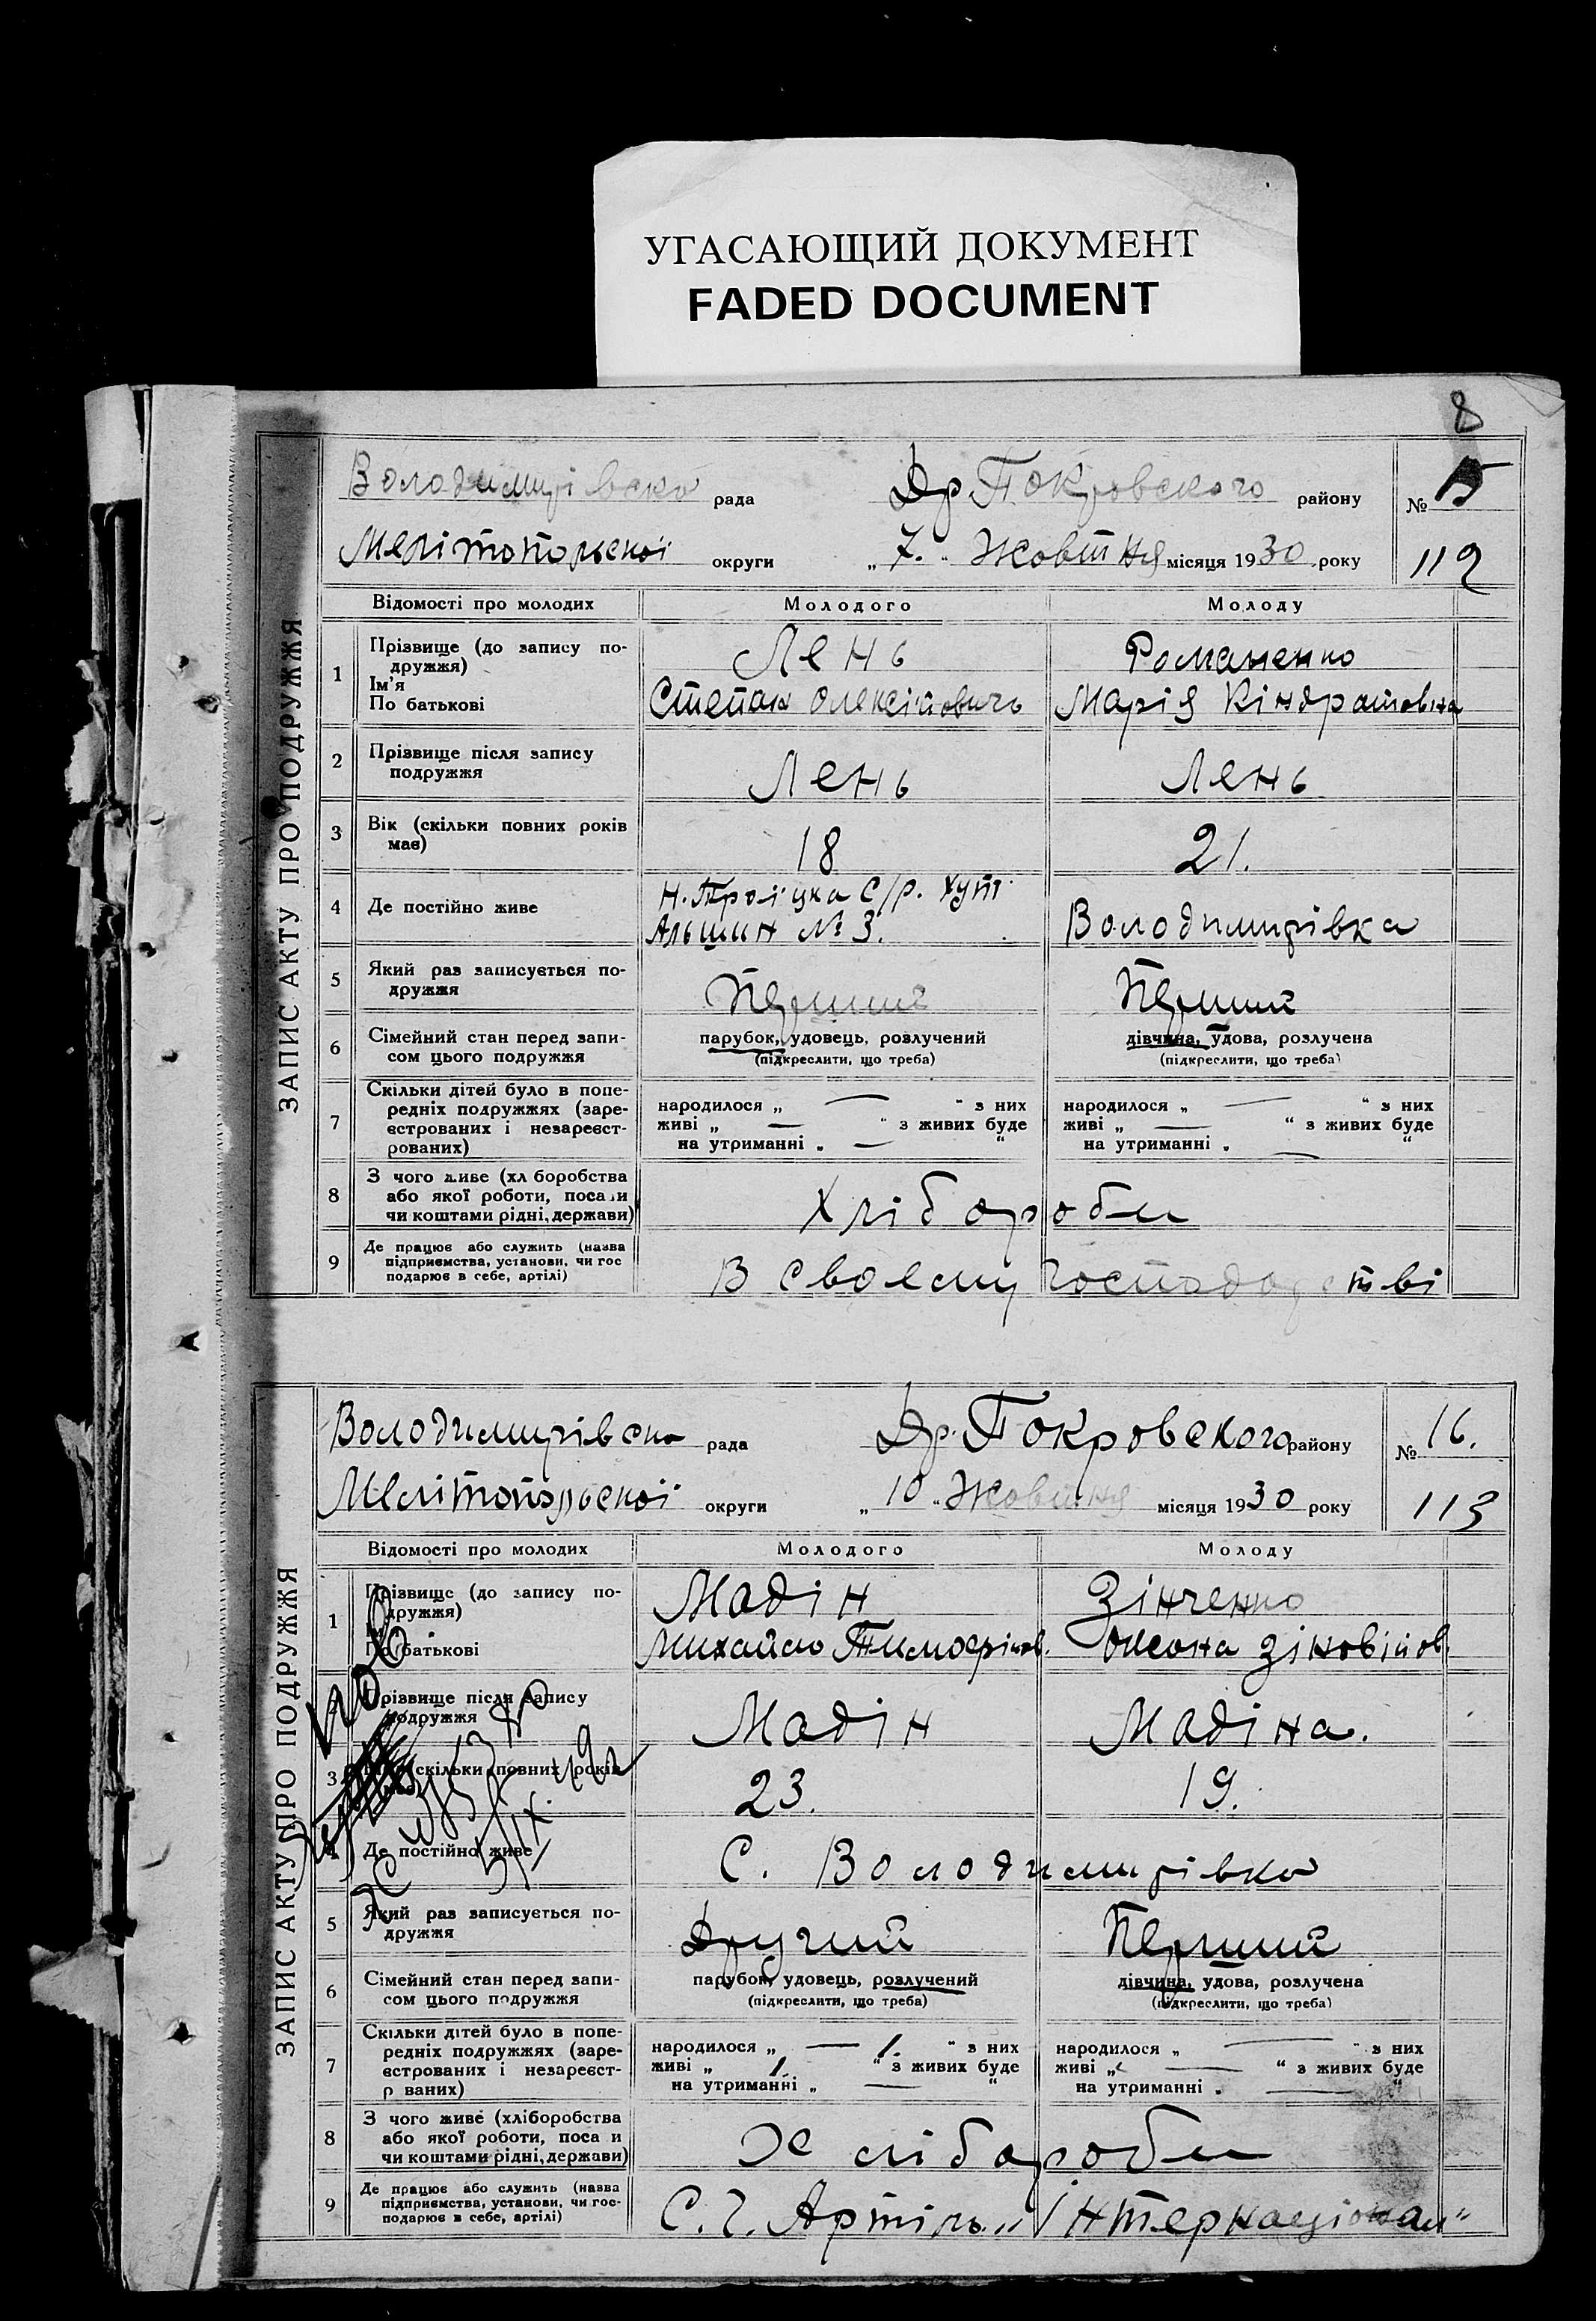 УГАСАЮЩИЙ ДОКУМЕНТ
FADED DOCUMENT
8
ЗАПИС АКТУ ПРО ПОДРУЖЖЯ
Володимирівська рада Др. Покровского району № 15
Мелітопольскої округи „7.“ Жовтня місяця 1930 року 112
Відомості про молодих Молодого Молоду
1 Прізвище (до запису по-
дружжя) Лень Романенко
Ім'я
По батькові Степан Олексійовичь Марія Кіндратовна
2 Прізвище після запису
подружжя Лень Лень
3 Вік (скільки повних років
має) 18 21.
4 Де постійно живе Н. Троїцка с/р. хут.
№ 3. Володимирівка
5 Який раз записується по-
дружжя Перший Перший
6 Сімейний стан перед запи-
сом цього подружжя парубок, удовець, розлучений дівчина, удова, розлучена
(підкреслити, що треба) (підкреслити, що треба)
7 Скільки дітей було в попе-
редніх подружжях (заре-
єстрованих і незареєст-
рованих) народилося „ — “ з них народилося „ — “ з них
живі „ — “ з живих буде живі „ — “ з живих буде
на утриманні „ — “ на утриманні „ — “
8 З чого живе (хл боробства
або якої роботи, посади
чи коштами рідні, держави) Хлібороби
9 Де працює або служить (назва
підприємства, установи, чи гос
подарює в себе, артілі) В своему господарстві
ЗАПИС АКТУ ПРО ПОДРУЖЖЯ
Володимирівска рада Др. Покровского району № 16.
Мелітопольскої округи „10“ Жовтня місяця 1930 року 113
Відомості про молодих Молодого Молоду
1 Прізвище (до запису по-
дружжя) Мадін Зінченко
По батькові Михайло Тимофіїов. Оксана Зіновійов.
Прізвище після запису
подружжя Мадін Мадіна.
3 (скільки повних років
23. 19.
4 Де постійно живе С. Володимирівка
5 Який раз записується по-
дружжя Другий Перший
6 Сімейний стан перед запи-
сом цього подружжя парубок, удовець, розлучений дівчина, удова, розлучена
(підкреслити, що треба) (підкреслити, що треба)
7 Скільки дітей було в попе-
редніх подружжях (заре-
єстрованих і незареєст-
р ваних) народилося „ — 1. “ з них народилося „ — “ з них
живі „ 1. “ з живих буде живі „ — “ з живих буде
на утриманні „ — “ на утриманні „ — “
8 З чого живе (хліборобства
або якої роботи, поса и
чи коштами рідні, держави) Хлібороби
9 Де працює або служить (назва
підприємства, установи, чи гос-
подарює в себе, артілі) С. г. Артіль „Інтернаціонал“